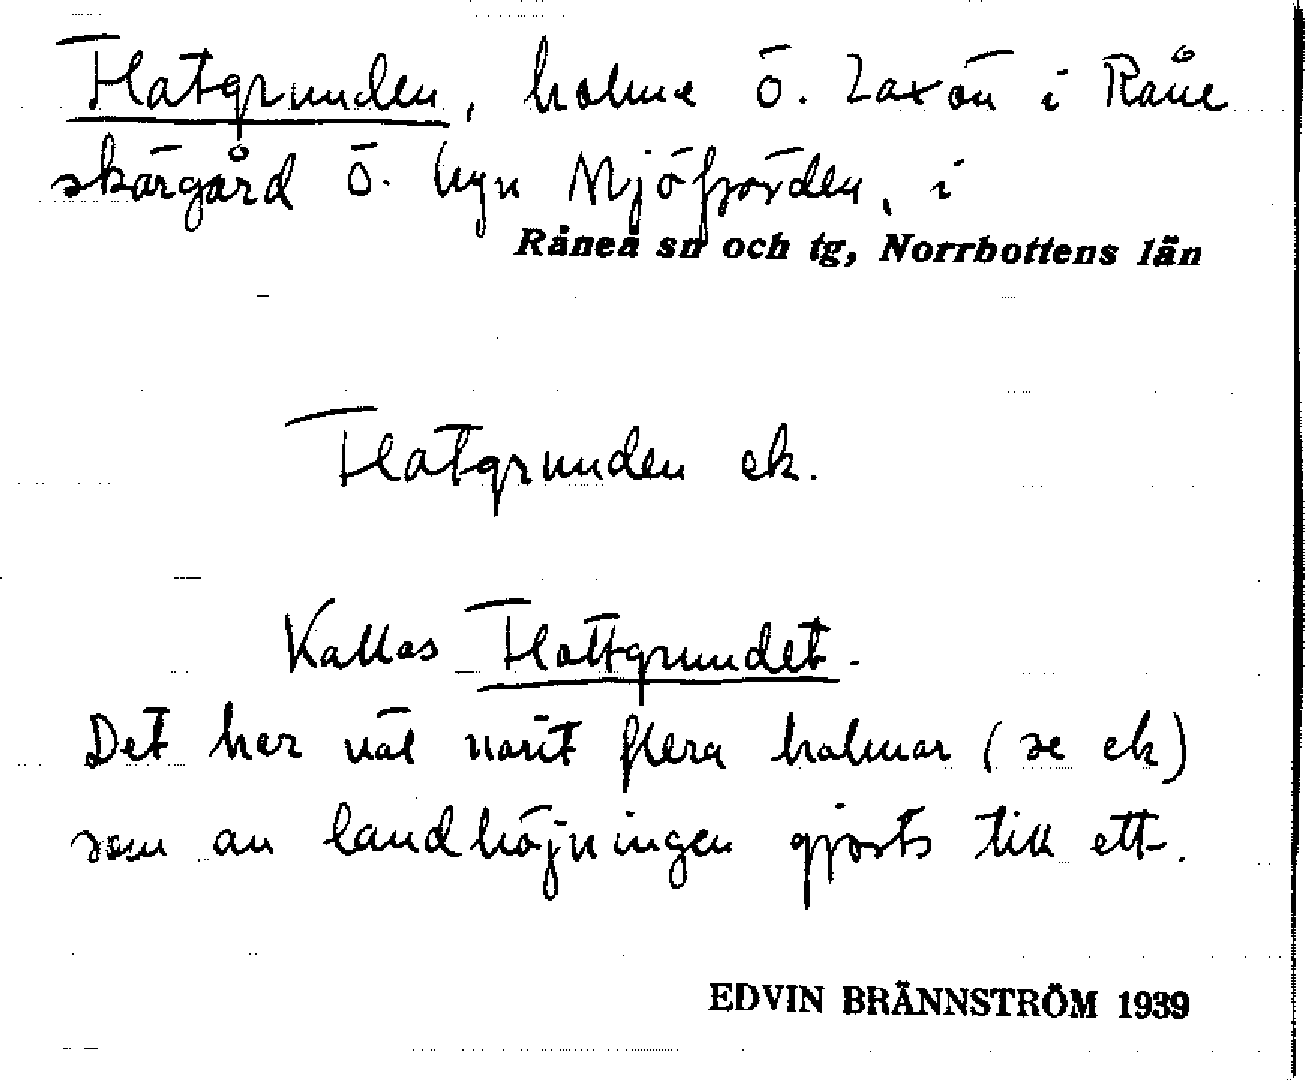 Flatgrunden, holme ö. Laxön i Råne
skärgård ö. byn Mjöfjärden, i
Råneå sn och tg, Norrbottens län
Flatgrunden ek.
Kallas Flattgrundet.
Det har väl varit flera holmar (se ek)
som av landhöjningen gjorts till ett.
EDVIN BRÄNNSTRÖM 1939